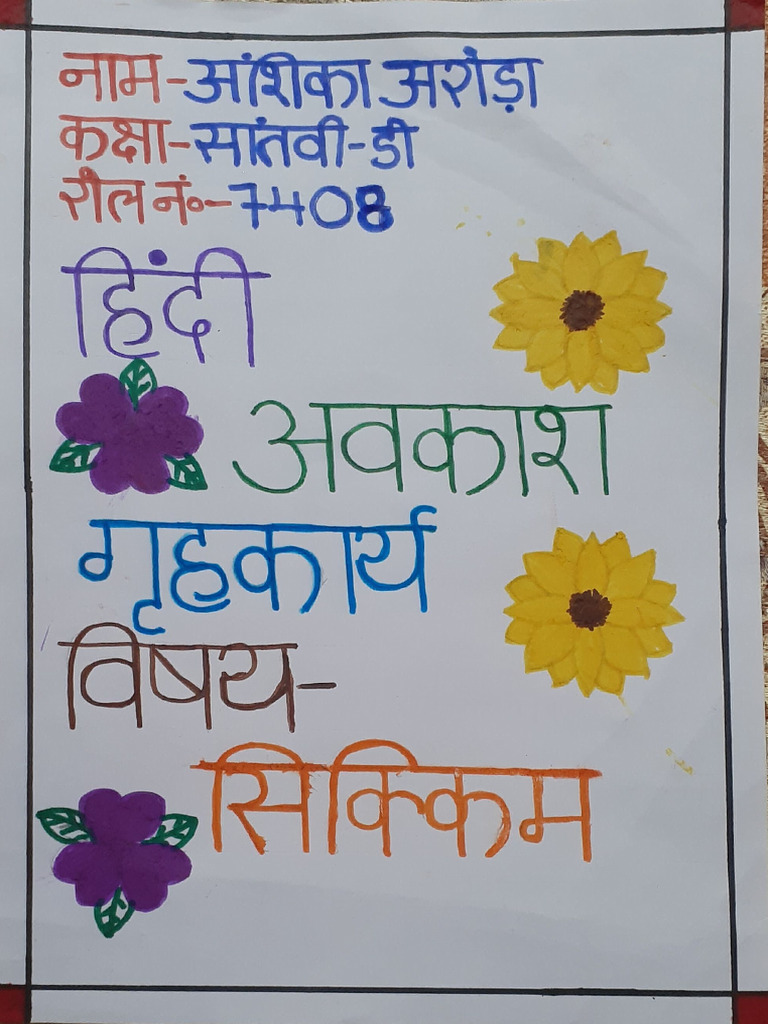 नाम-आंशिका अरोड़ा
कक्षा-सांतवी-डी
रोल नं०-7408
हिंदी
अवकाश
गृहकार्य
विषय-
सिक्किम